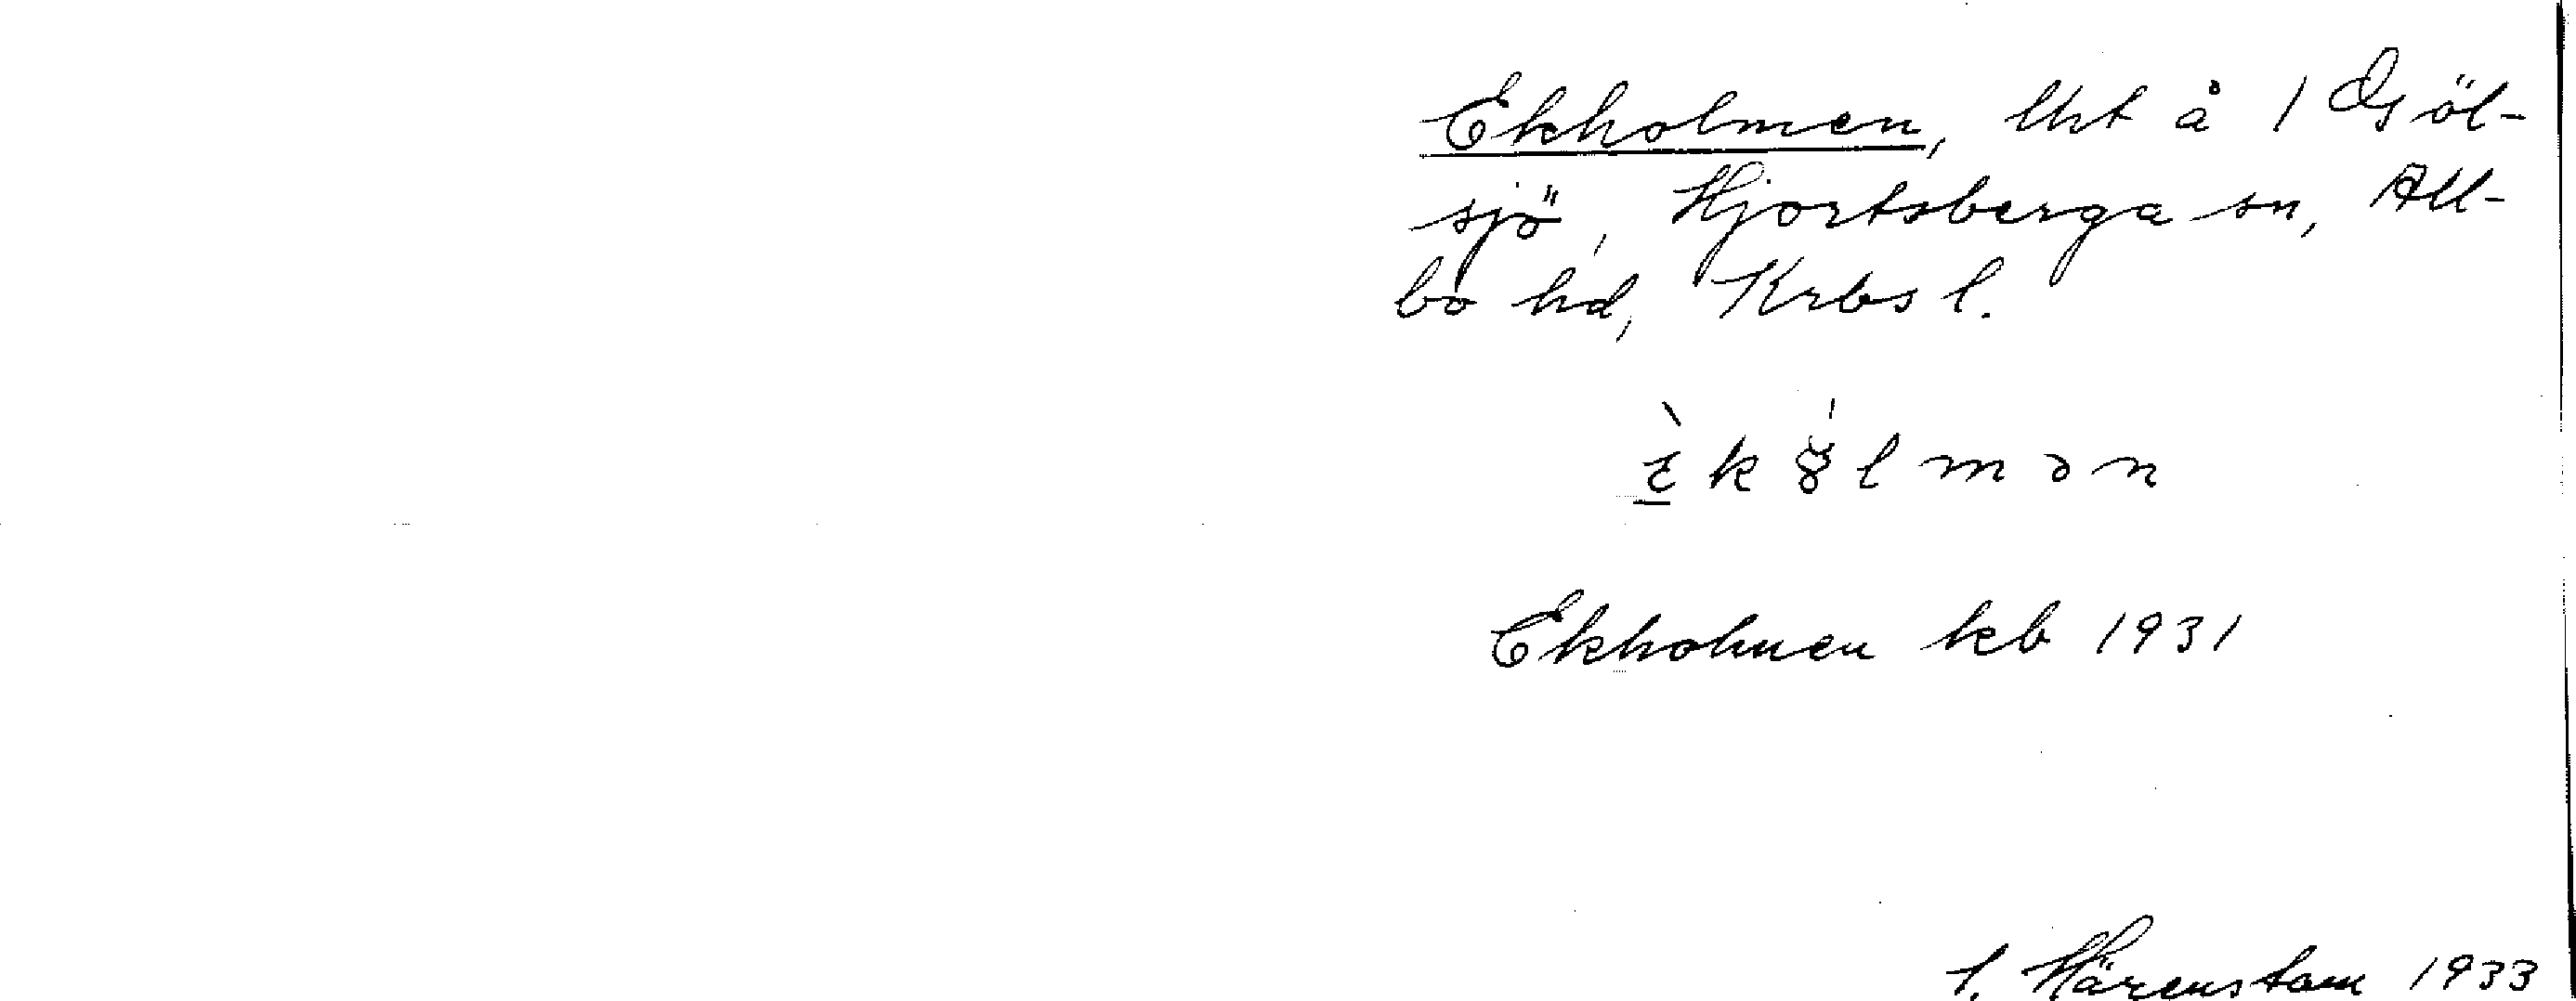 Ekholmen, lht å 1 Göl-
sjö, Hjortsberga sn, All-
bo hd, Krbs l.
Ekholmen kb 1931
Härenstam 1933